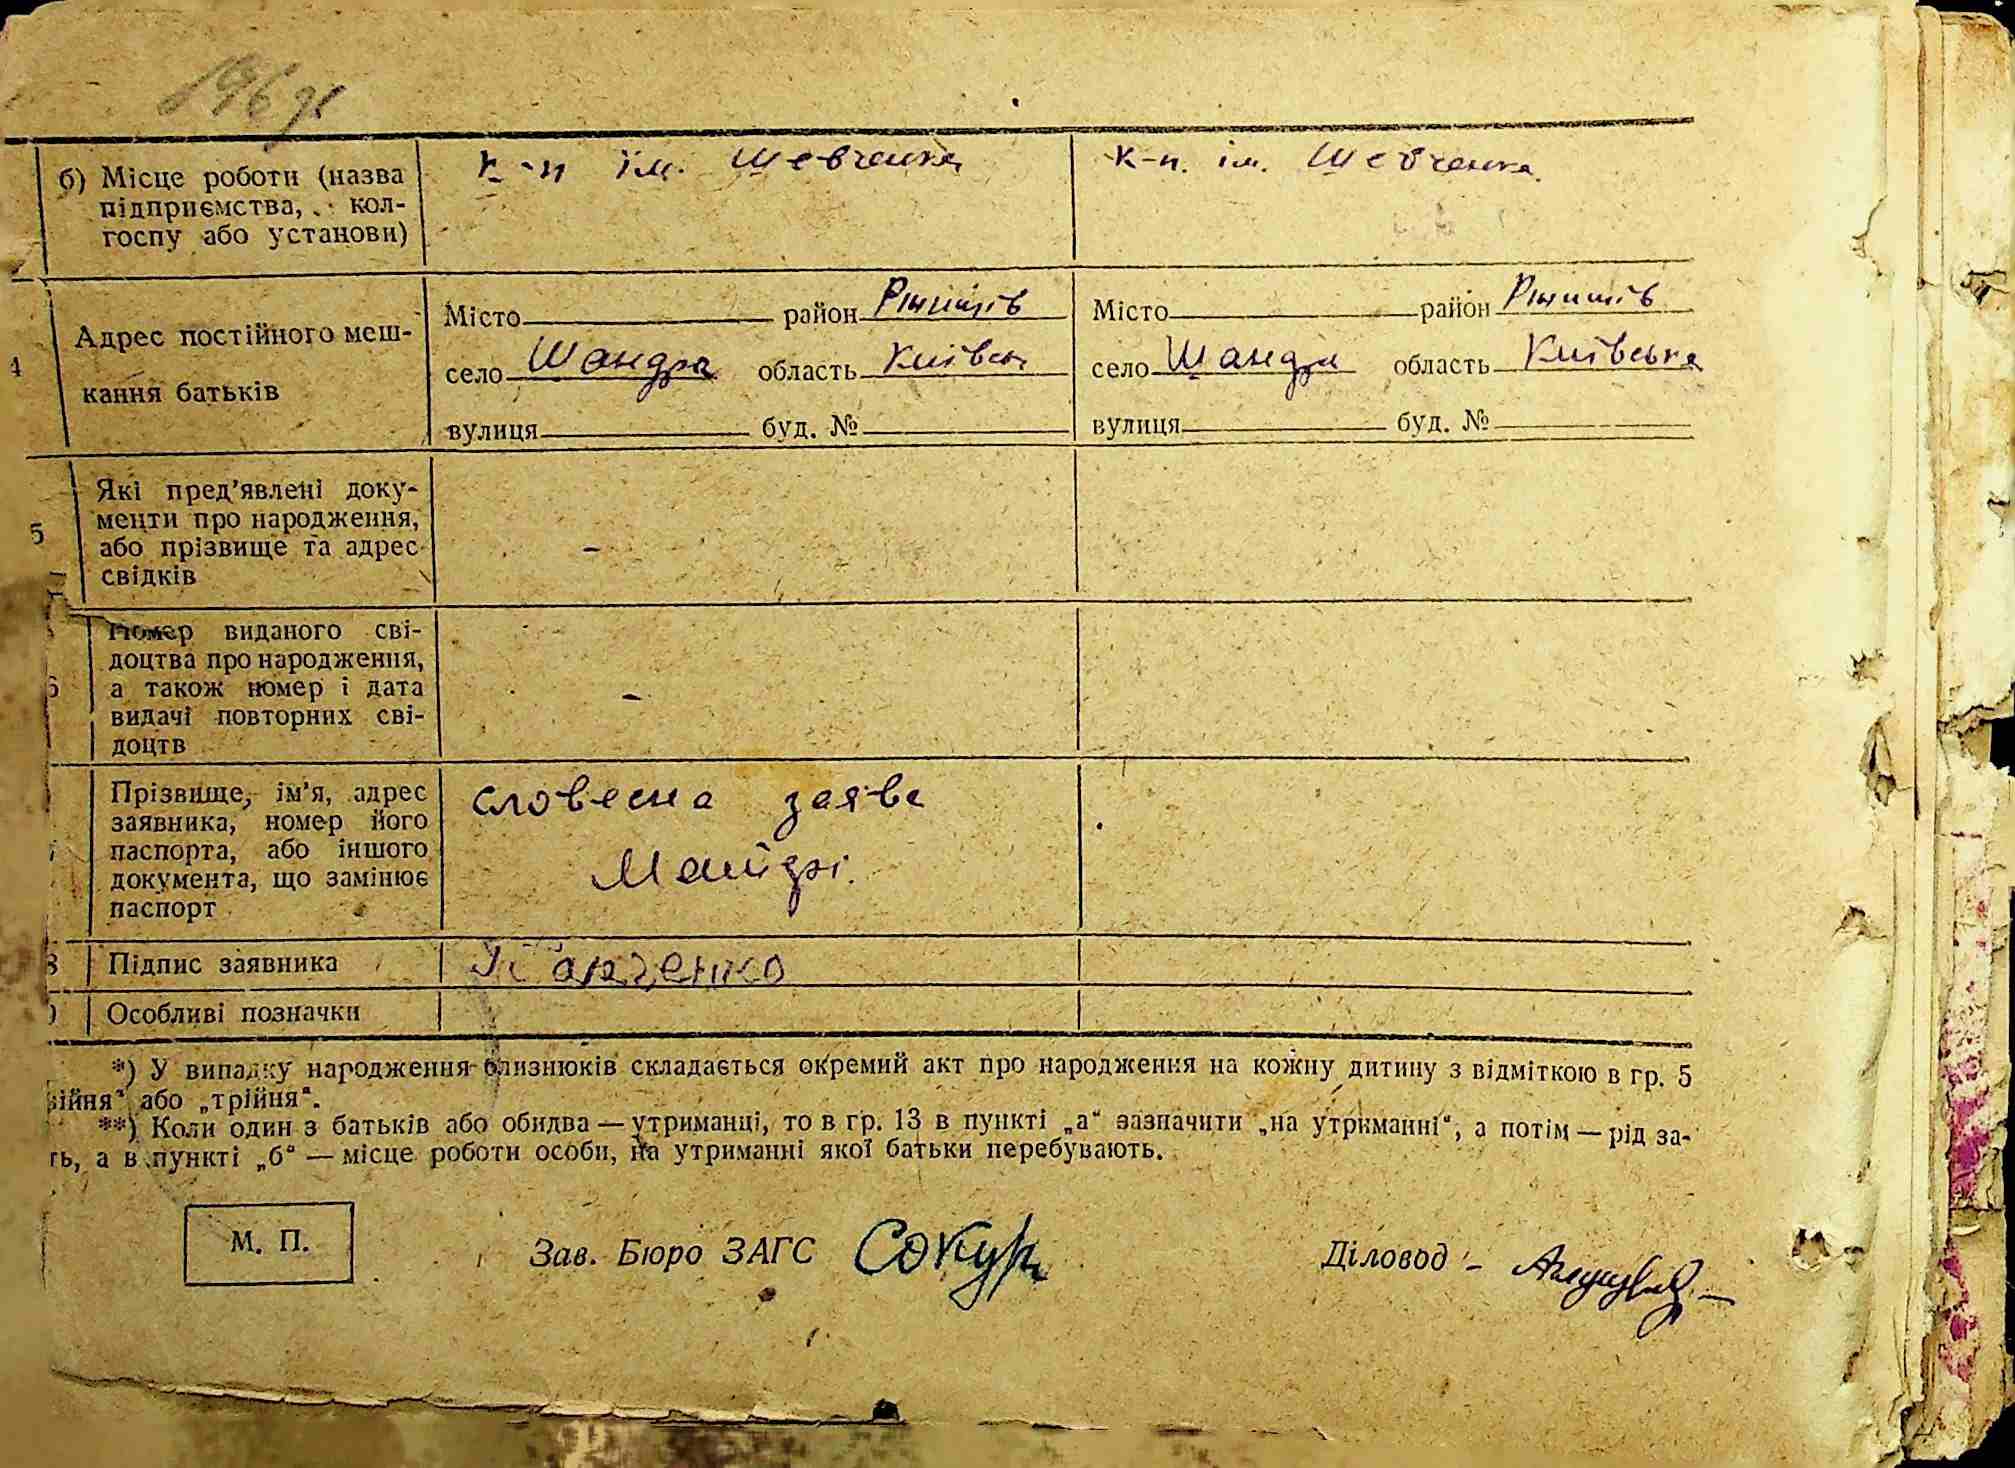 196
б) Місце роботи (назва
підприємства, кол-
госпу або установи)
к-п ім. Шевченка
к-п. ім. Шевченка.
4
Адрес постійного меш-
кання батьків
Місто район Ржищів
село Шандра область Київськ
вулиця буд. №
Місто район Ржищів
село Шандра область Київська
вулиця буд. №
5
Які пред'явлені доку-
менти про народження,
або прізвище та адрес
свідків
-
6
Номер виданого сві-
доцтва про народження,
а також номер і дата
видачі повторних сві-
доцтв
-
Прізвище, ім'я, адрес
заявника, номер його
паспорта, або іншого
документа, що замінює
паспорт
словесна заява
8
Підпис заявника
Особливі позначки
*) У випадку народження близнюків складається окремий акт про народження на кожну дитину з відміткою в гр. 5
ійня" або „трійня".
**) Коли один з батьків або обидва — утриманці, то в гр. 13 в пункті „а" зазначити „на утриманні", а потім — рід за-
ть, а в пункті „б" — місце роботи особи, на утриманні якої батьки перебувають.
М. П.
Зав. Бюро ЗАГС Сокур
Діловод -